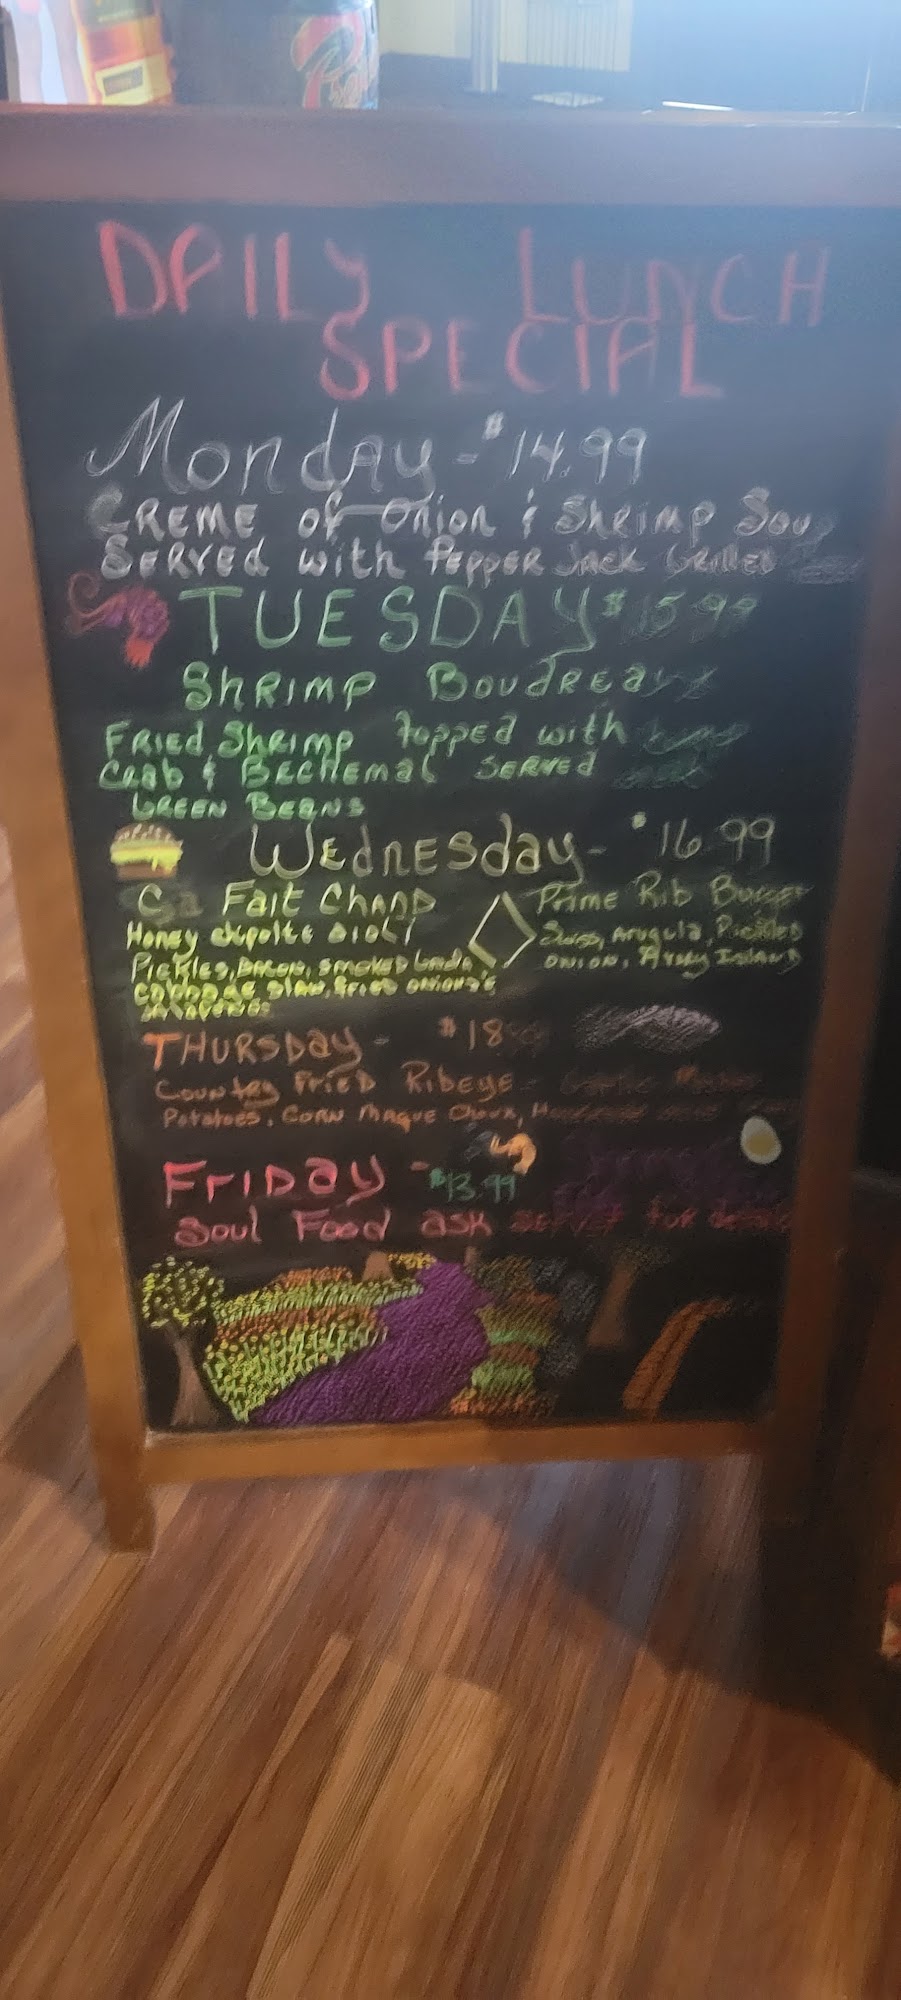 DAILY LUNCH
SPECIAL
Monday - $14.99
CREME of Onion & Shrimp Soup
SERVED with PEPPER Jack Grilled
TUESDAY $15.99
ShRIMP BouDREaux
FRIED Shrimp topped with
CRab & BECHEMAL SERVED
GREEN BEANS
WEDNESday - $16.99
Ca Fait Chand
Prime Rib Burger
Honey chipolte aioli
Swiss, Arugula, Pickled
Pickles, Bacon, Smoked Gouda
ONION, Avery Island
Cabbage slaw, fried onions
Jalapenos
THURSDay - $18
Country FRIED Ribeye - Garlic Mashed
Potatoes, Corn Maque Choux,
FRIDAY - $13.99
Soul Food ask server for details